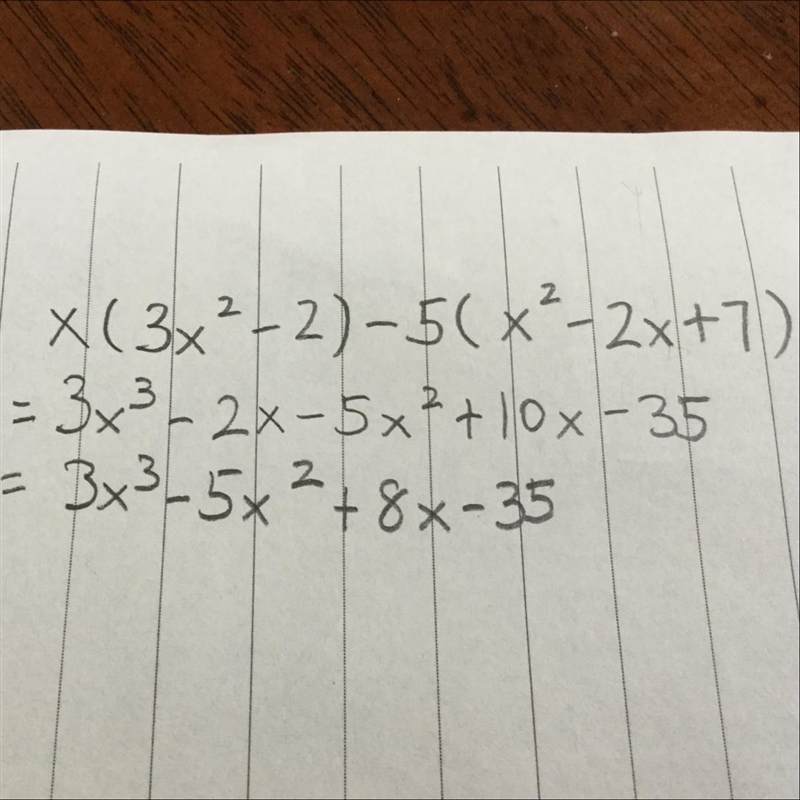 x(3x² - 2) - 5(x² - 2x + 7)
= 3x³ - 2x - 5x² + 10x - 35
= 3x³ - 5x² + 8x - 35